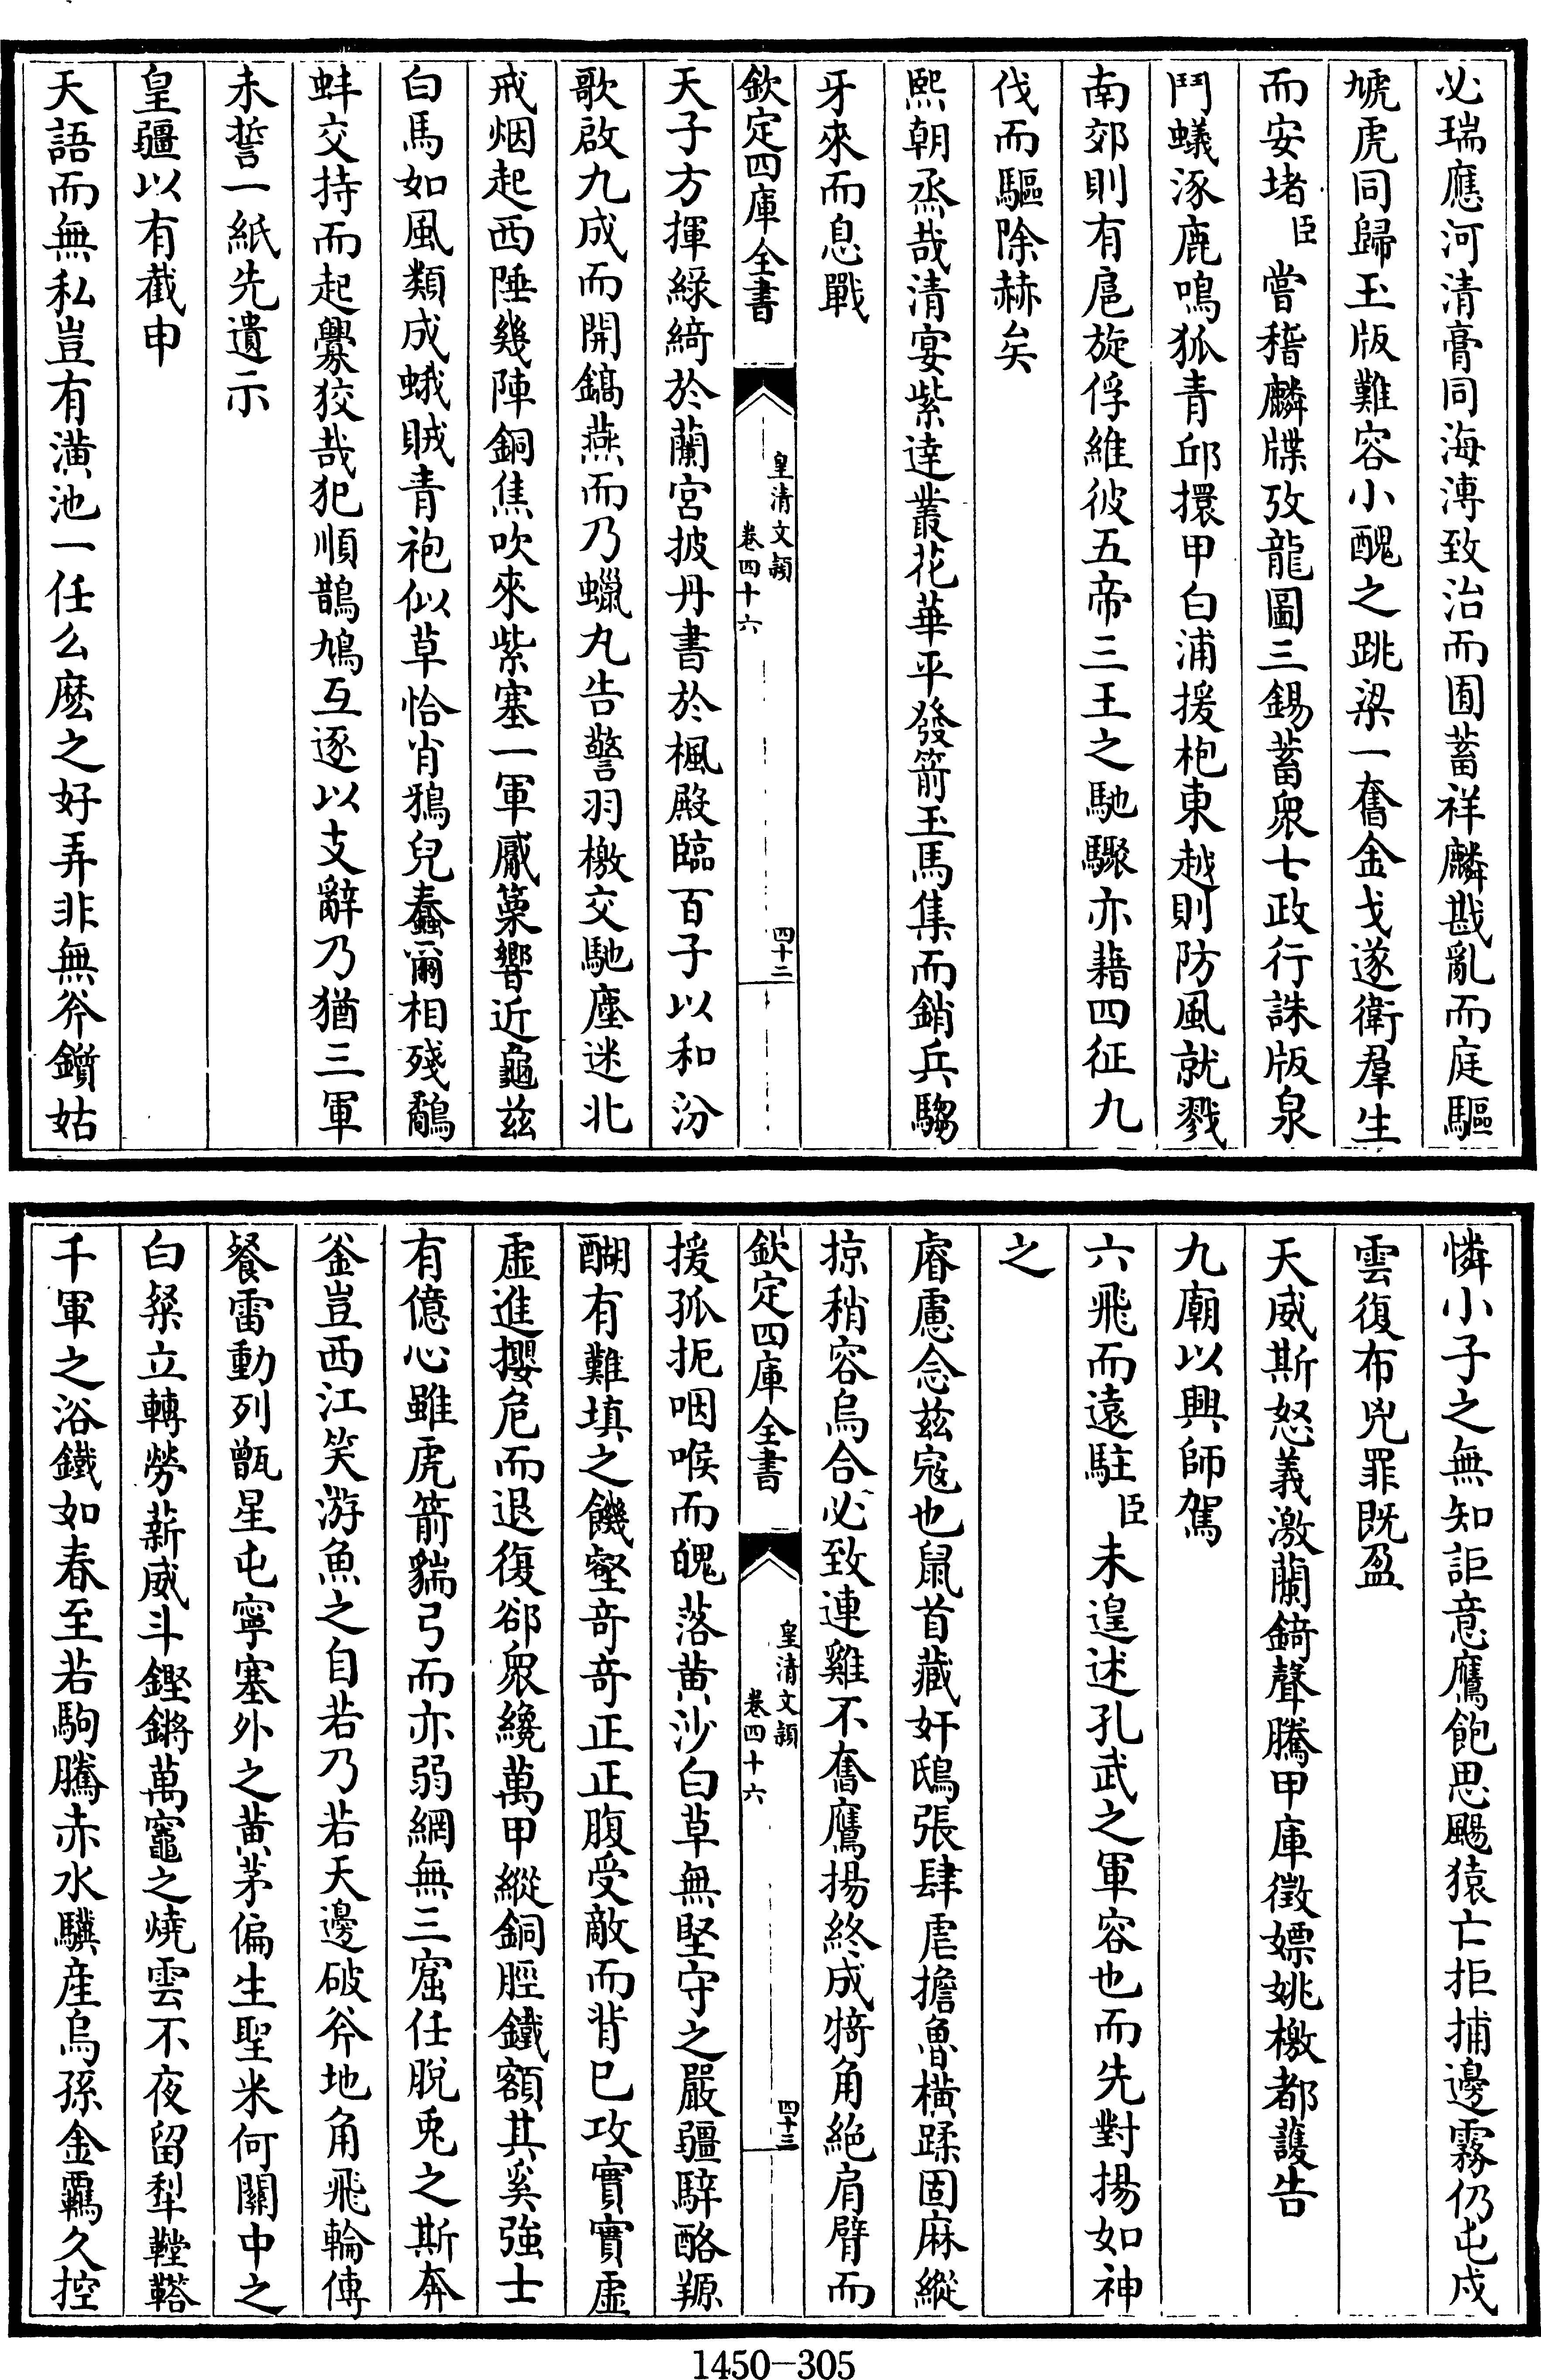 必瑞應河清膏同海溥致治而囿蓄祥麟戡亂而庭驅
虓虎同歸玉版難容小醜之跳梁一奮金戈遂衛羣生
而安堵臣嘗稽麟牒攷龍圖三錫蓄衆七政行誅版泉
鬥蟻涿鹿鳴狐青邱擐甲白浦援枹東越則防風就戮
南郊則有扈旋俘維彼五帝三王之馳驟亦藉四征九
伐而驅除赫矣
熙朝烝哉清宴紫達叢花華平發箭玉馬集而銷兵騶
牙來而息戰
欽定四庫全書
皇清文穎
卷四十六
四十二
天子方揮綠綺於蘭宮披丹書於楓殿臨百子以和汾
歌啟九成而開鎬燕而乃蠟丸告警羽檄交馳塵迷北
戒烟起西陲幾陣銅焦吹來紫塞一軍觱篥響近龜兹
白馬如風類成蛾賊青袍似草恰肖鴉兒蠢爾相殘鷸
蚌交持而起釁狡哉犯順鵲鳩互逐以支辭乃猶三軍
未誓一紙先遺示
皇疆以有截申
天語而無私豈有潢池一任么麽之好弄非無斧鑕姑
憐小子之無知詎意鷹飽思颺猿亡拒捕邊霧仍屯戍
雲復布兇罪既盈
天威斯怒義激蘭錡聲騰甲庫徵嫖姚檄都護告
九廟以興師駕
六飛而遠駐臣未遑述孔武之軍容也而先對揚如神
之
睿慮念茲寇也鼠首藏奸鴟張肆虐擔魯橫蹂固麻縱
掠稍容烏合必致連雞不奮鷹揚終成犄角絕肩臂而
欽定四庫全書
皇清文穎
卷四十六
四十三
援孤扼咽喉而魄落黃沙白草無堅守之嚴疆騂酪羱
醐有難填之饑壑奇奇正正腹受敵而背已攻實實虛
虛進攖危而退復郤衆纔萬甲縱銅脛鐵額其奚強士
有億心雖虎箭貒弓而亦弱網無三窟任脫兎之斯奔
釜豈西江笑游魚之自若乃若天邊破斧地角飛輪傳
餐雷動列甑星屯寧塞外之黃茅偏生聖米何關中之
白粲立轉勞薪威斗鏗鏘萬竈之燒雲不夜留犂鞺鞳
千軍之浴鐵如春至若駒騰赤水驥産烏孫金覊久控
1450-305